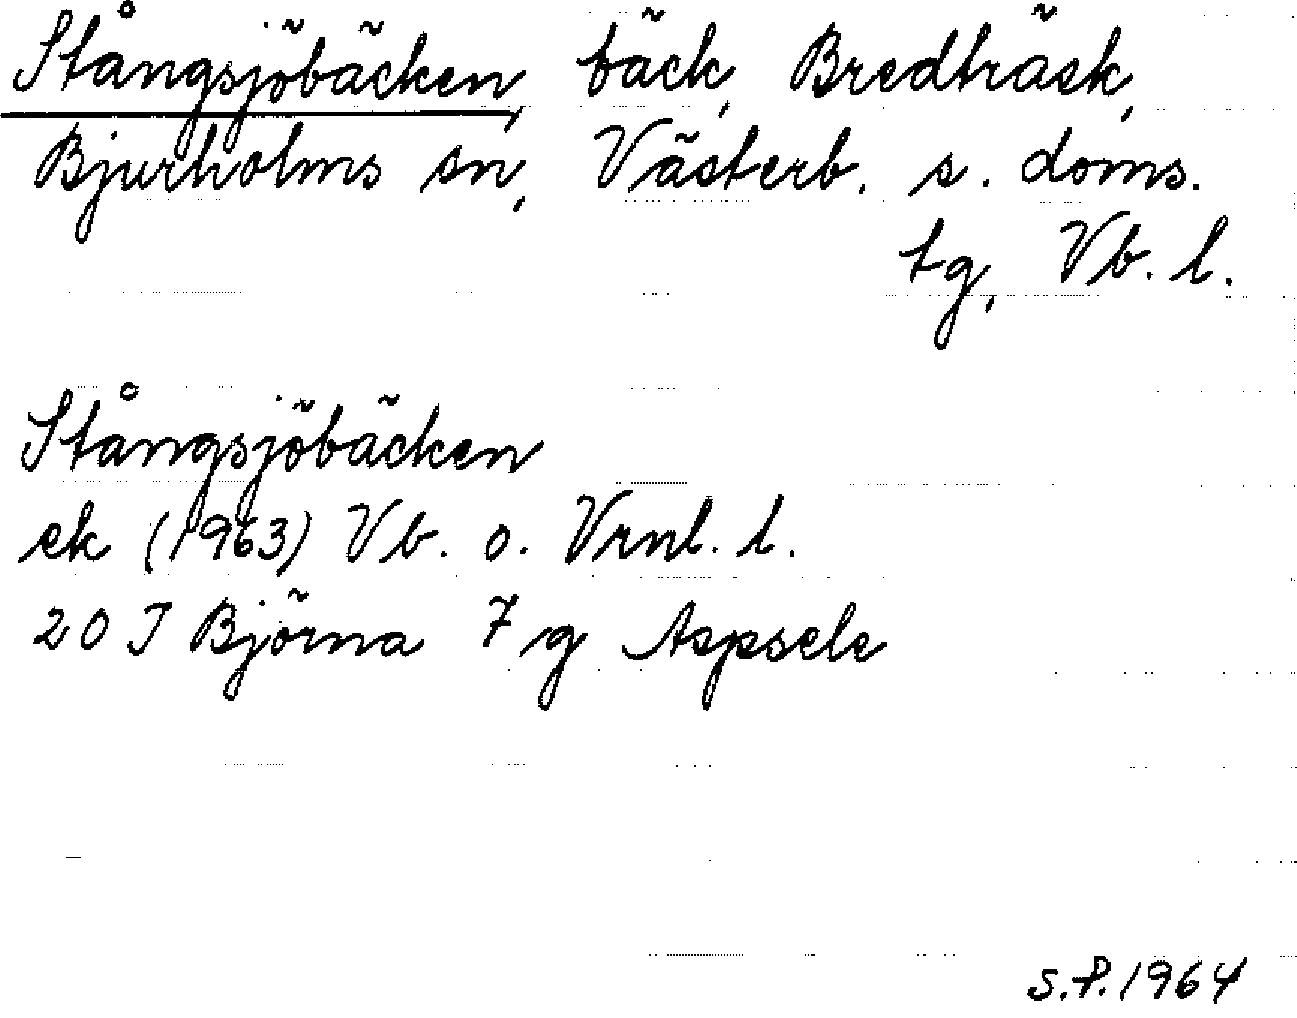 Stångsjöbäcken, bäck, Bredträsk,
Bjurholms sn, Västerb. s. doms.
tg, Vb. l.
Stångsjöbäcken
ek (1963) Vb. o. Vrnl. l.
20 J Björna 7 g Aspsele
S.P. 1964